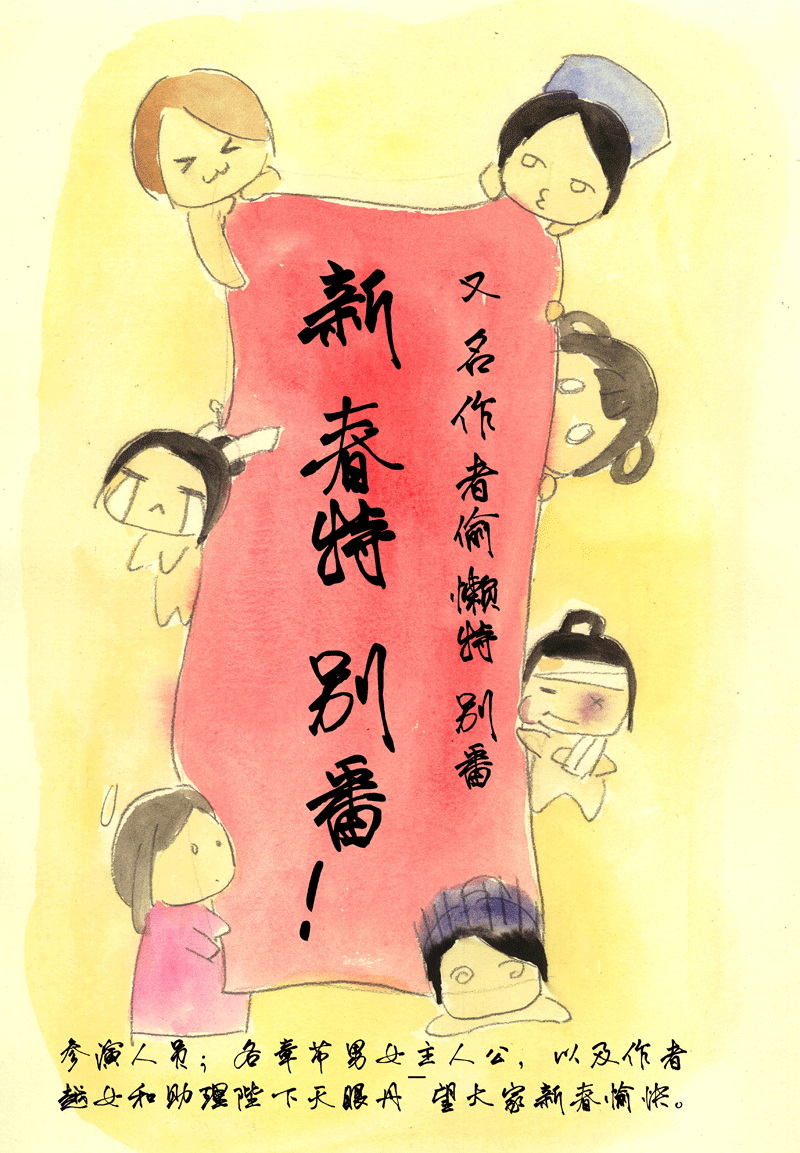 新春特别番！
又名作者偷懒特别番
参演人员；各章节男女主人公，以及作者
越女和助理陛下天眼丹_望大家新春愉快。